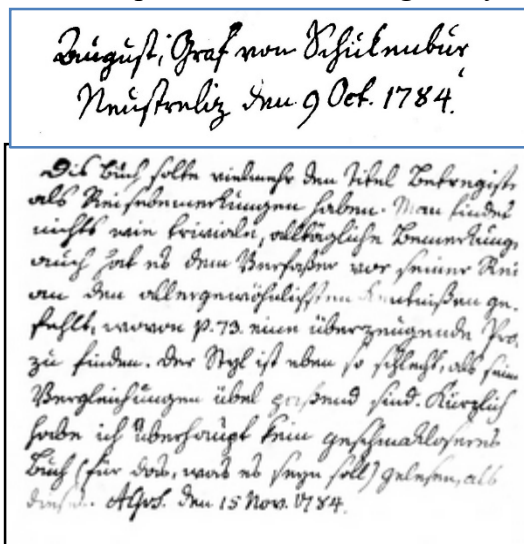 August, Graf von Schulenbur
Neustreliz den 9 Oct. 1784.
Dis Buch solte vielmehr den Titel Betregist
als Reisebemerkungen haben. Man findet
nichts wie triviale, alltägliche Bemerkung
auch hat es dem Verfaßer vor seiner Rei
an den allergewöhnlichsten Kentnißen ge-
fehlt, wovon p. 73. eine überzeugende Pro.
zu finden. Der Styl ist eben so schlecht, als seine
Vergleichungen übel paßend sind. Kürzlich
habe ich überhaupt kein geschmakloseres
Buch (für das, was es seyn soll) gelesen, als
dieses. den 15 Nov. 1784.